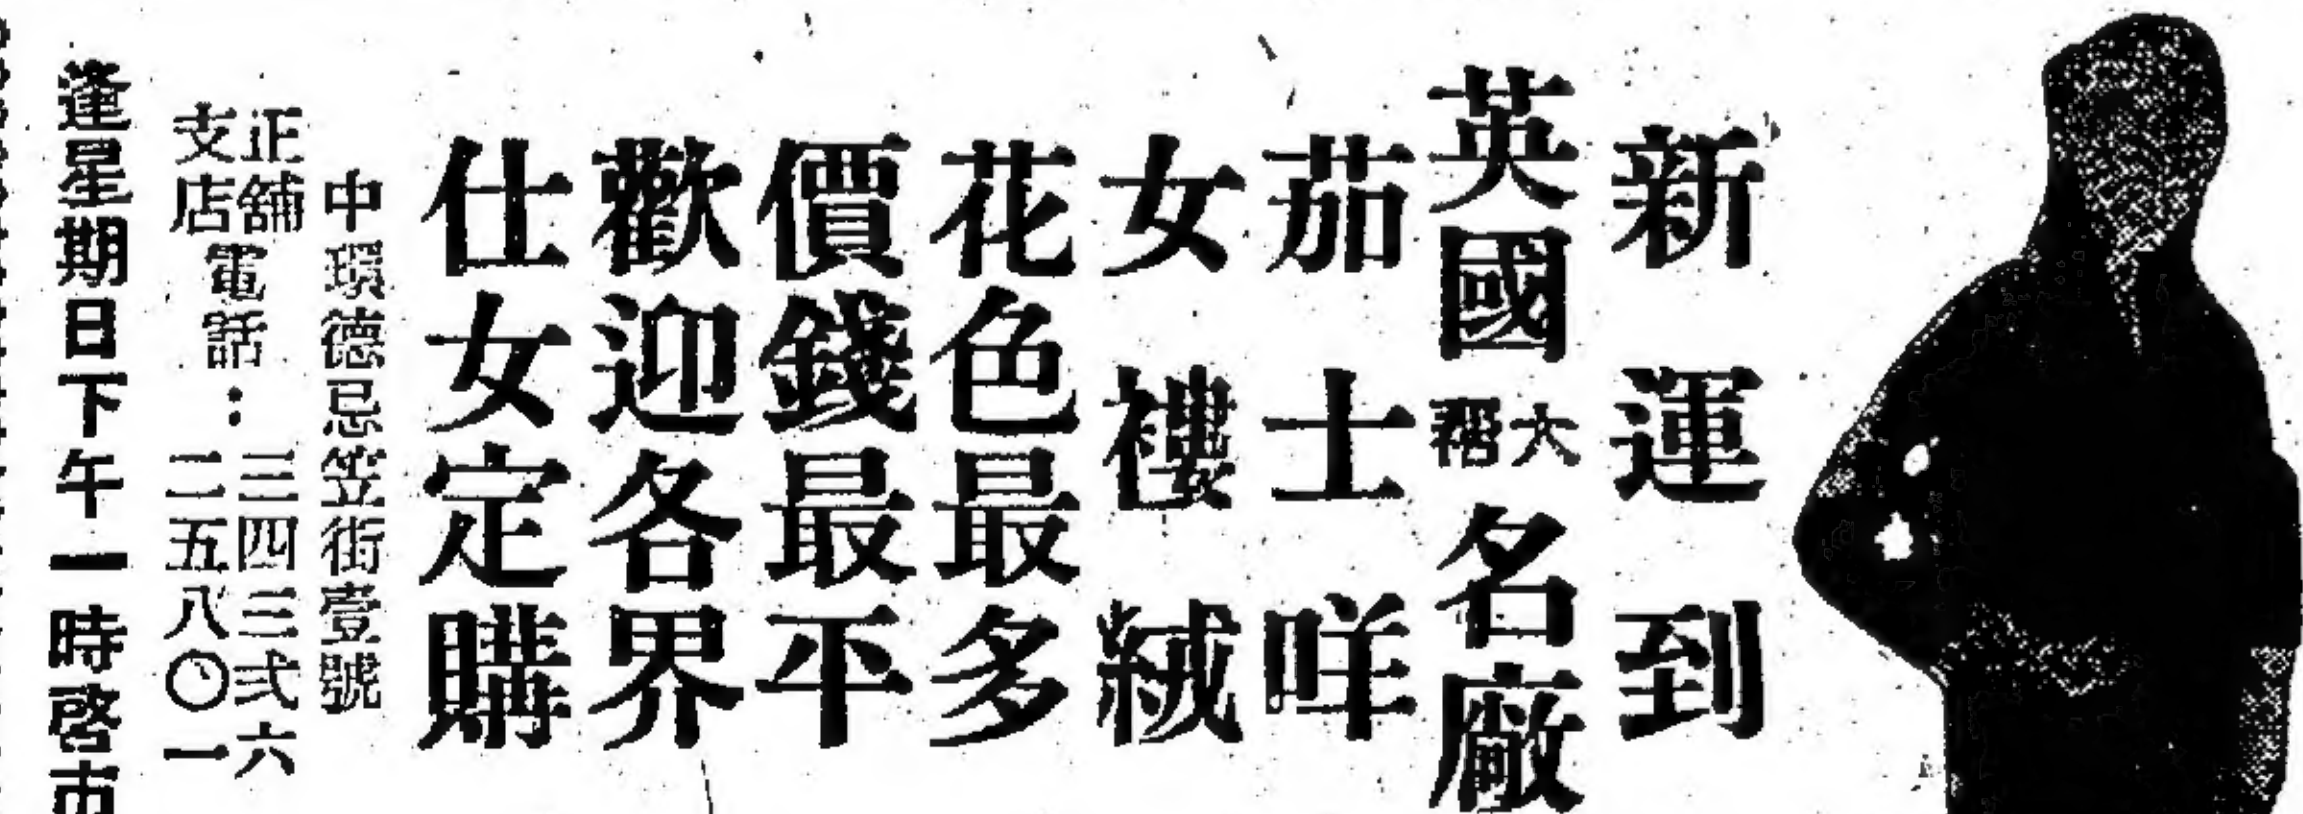 新運到
英國大名廠
茄士咩
女褸絨
花色最多
價錢最平
歡迎各界
仕女定購
中環德忌笠街壹號
正舖電話：三四三弍六
支店 二五八〇一
逢星期日下午一時啓市